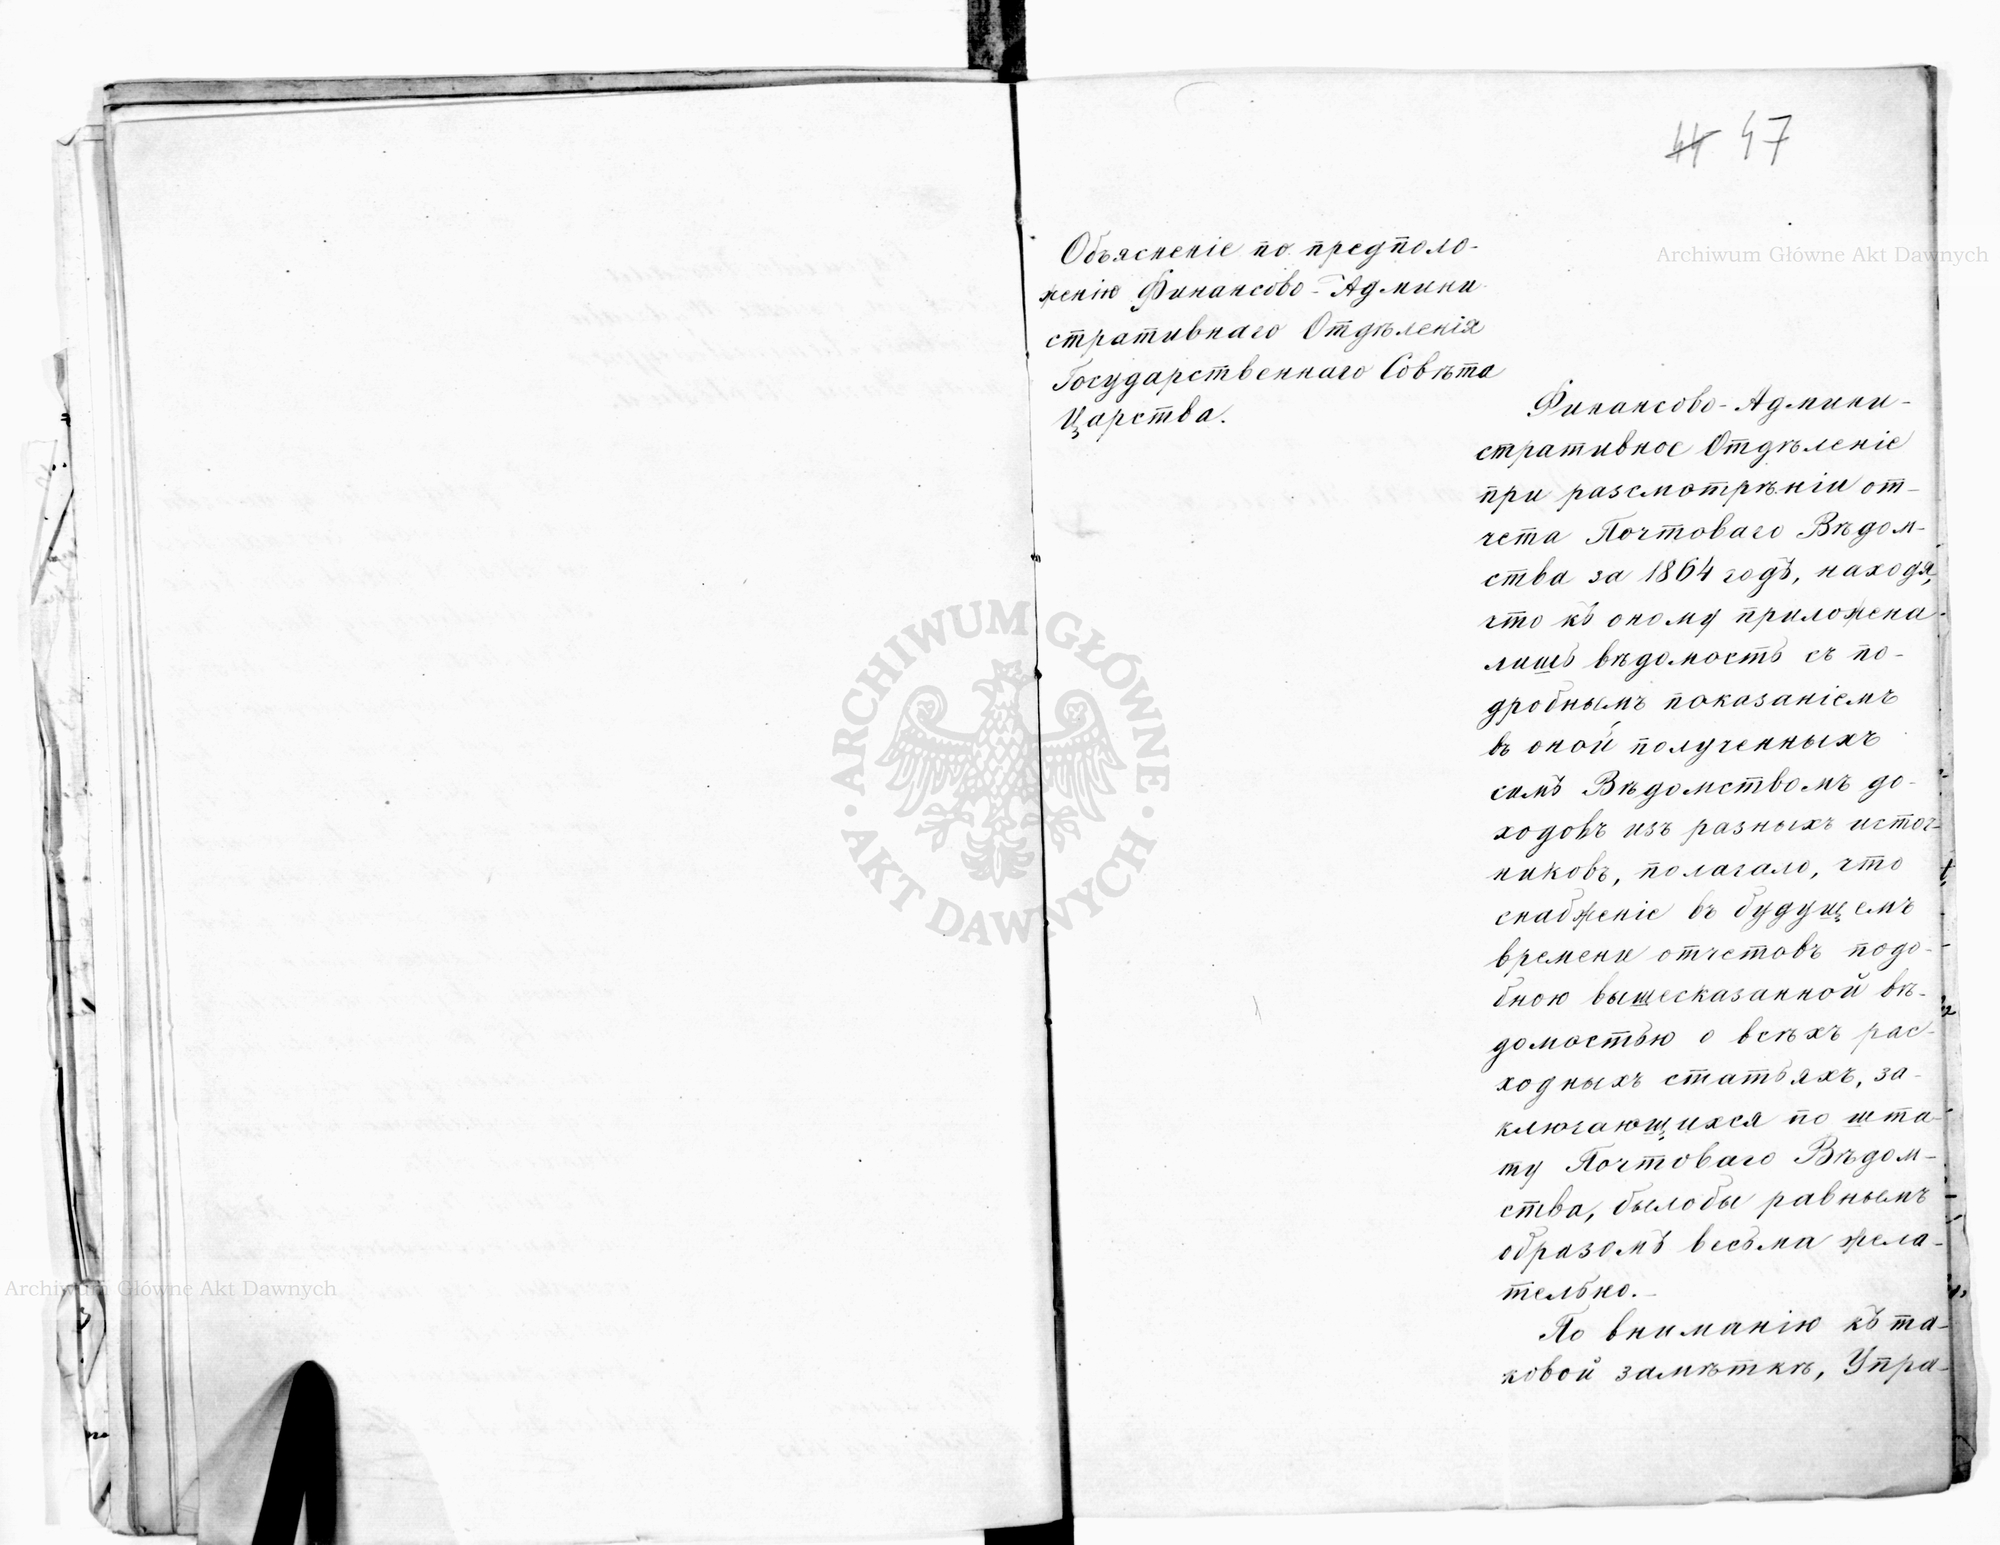 44 47
Archiwum Główne Akt Dawnych
Объясненіе по предполо-
женію Финансово-Админи-
стративнаго Отдѣленія
Государственнаго Совѣта
Царства.
Финансово-Админи-
стративное Отдѣленіе
при разсмотрѣніи от-
чета Почтоваго Вѣдом-
ства за 1864 годъ, находя,
что къ оному приложена
лишь вѣдомость съ по-
дробнымъ показаніемъ
въ оной полученныхъ
симъ Вѣдомствомъ до-
ходовъ изъ разныхъ источ-
никовъ, полагало, что
снабженіе въ будущемъ
времени отчетовъ подо-
бною вышесказанной вѣ-
домостью о всѣхъ рас-
ходныхъ статьяхъ, за-
ключающихся по шта-
ту Почтоваго Вѣдом-
ства, былобы равнымъ
образомъ весьма жела-
тельно.-
По вниманію къ та-
ковой замѣткѣ, Упра-
ARCHIWUM GŁÓWNE
AKT DAWNYCH
Archiwum Główne Akt Dawnych